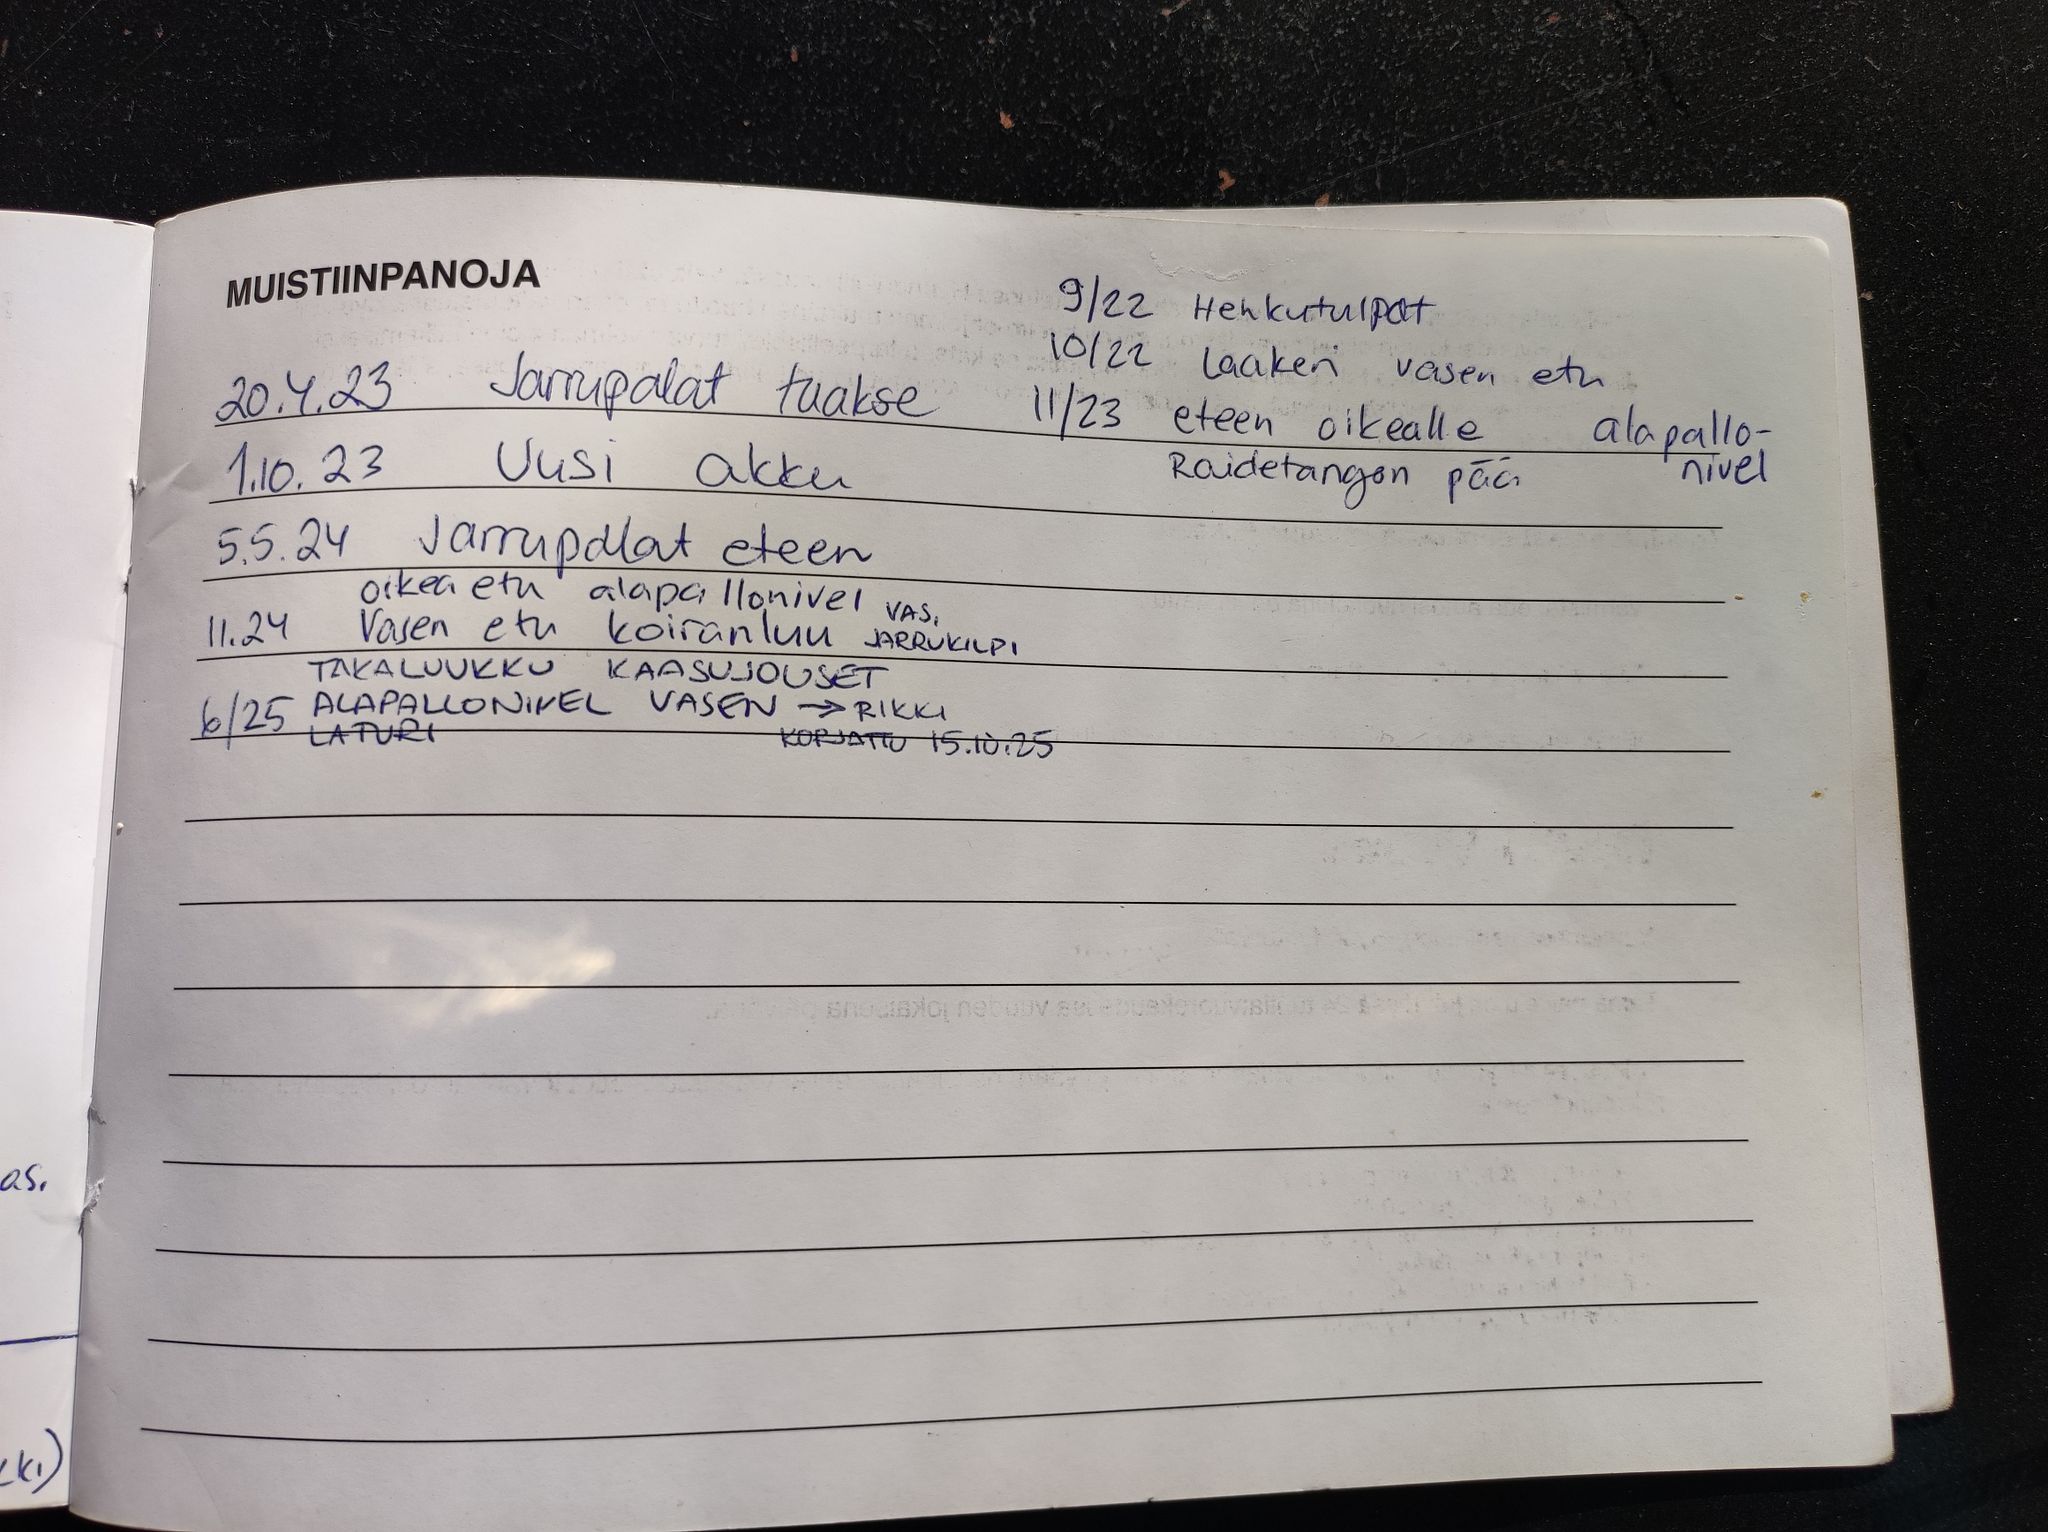 MUISTIINPANOJA
9/22 Henkutulpat
10/22 Laakeri vasen etu
20.4.23 Jarrupalat taakse
11/23 eteen oikealle alapallo-
Raidetangon pää nivel
1.10.23 Uusi akku
5.5.24 Jarrupalat eteen
oikea etu alapallonivel VAS.
11.24 Vasen etu koiranluu JARRUKILPI
TAKALUUKKU KAASUJOUSET
6/25 ALAPALLONIVEL VASEN → RIKKI
LATURI KORJATTU 15.10.25
as.
kki)